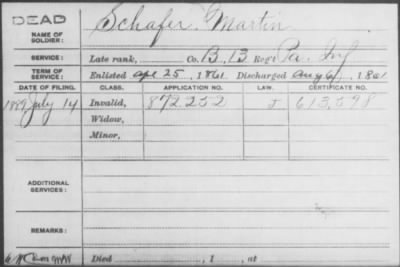 DEAD
NAME OF SOLDIER: Schafer, Martin
SERVICE: Late rank, Co. B, 13 Reg't Pa. Inf
TERM OF SERVICE: Enlisted Apl 25, 1861 Discharged Aug 6, 1861
DATE OF FILING. CLASS. APPLICATION NO. LAW. CERTIFICATE NO.
1889 July 14 Invalid, 872252 J 613,598
Widow,
Minor,
ADDITIONAL SERVICES:
REMARKS:
Died , 1 , at